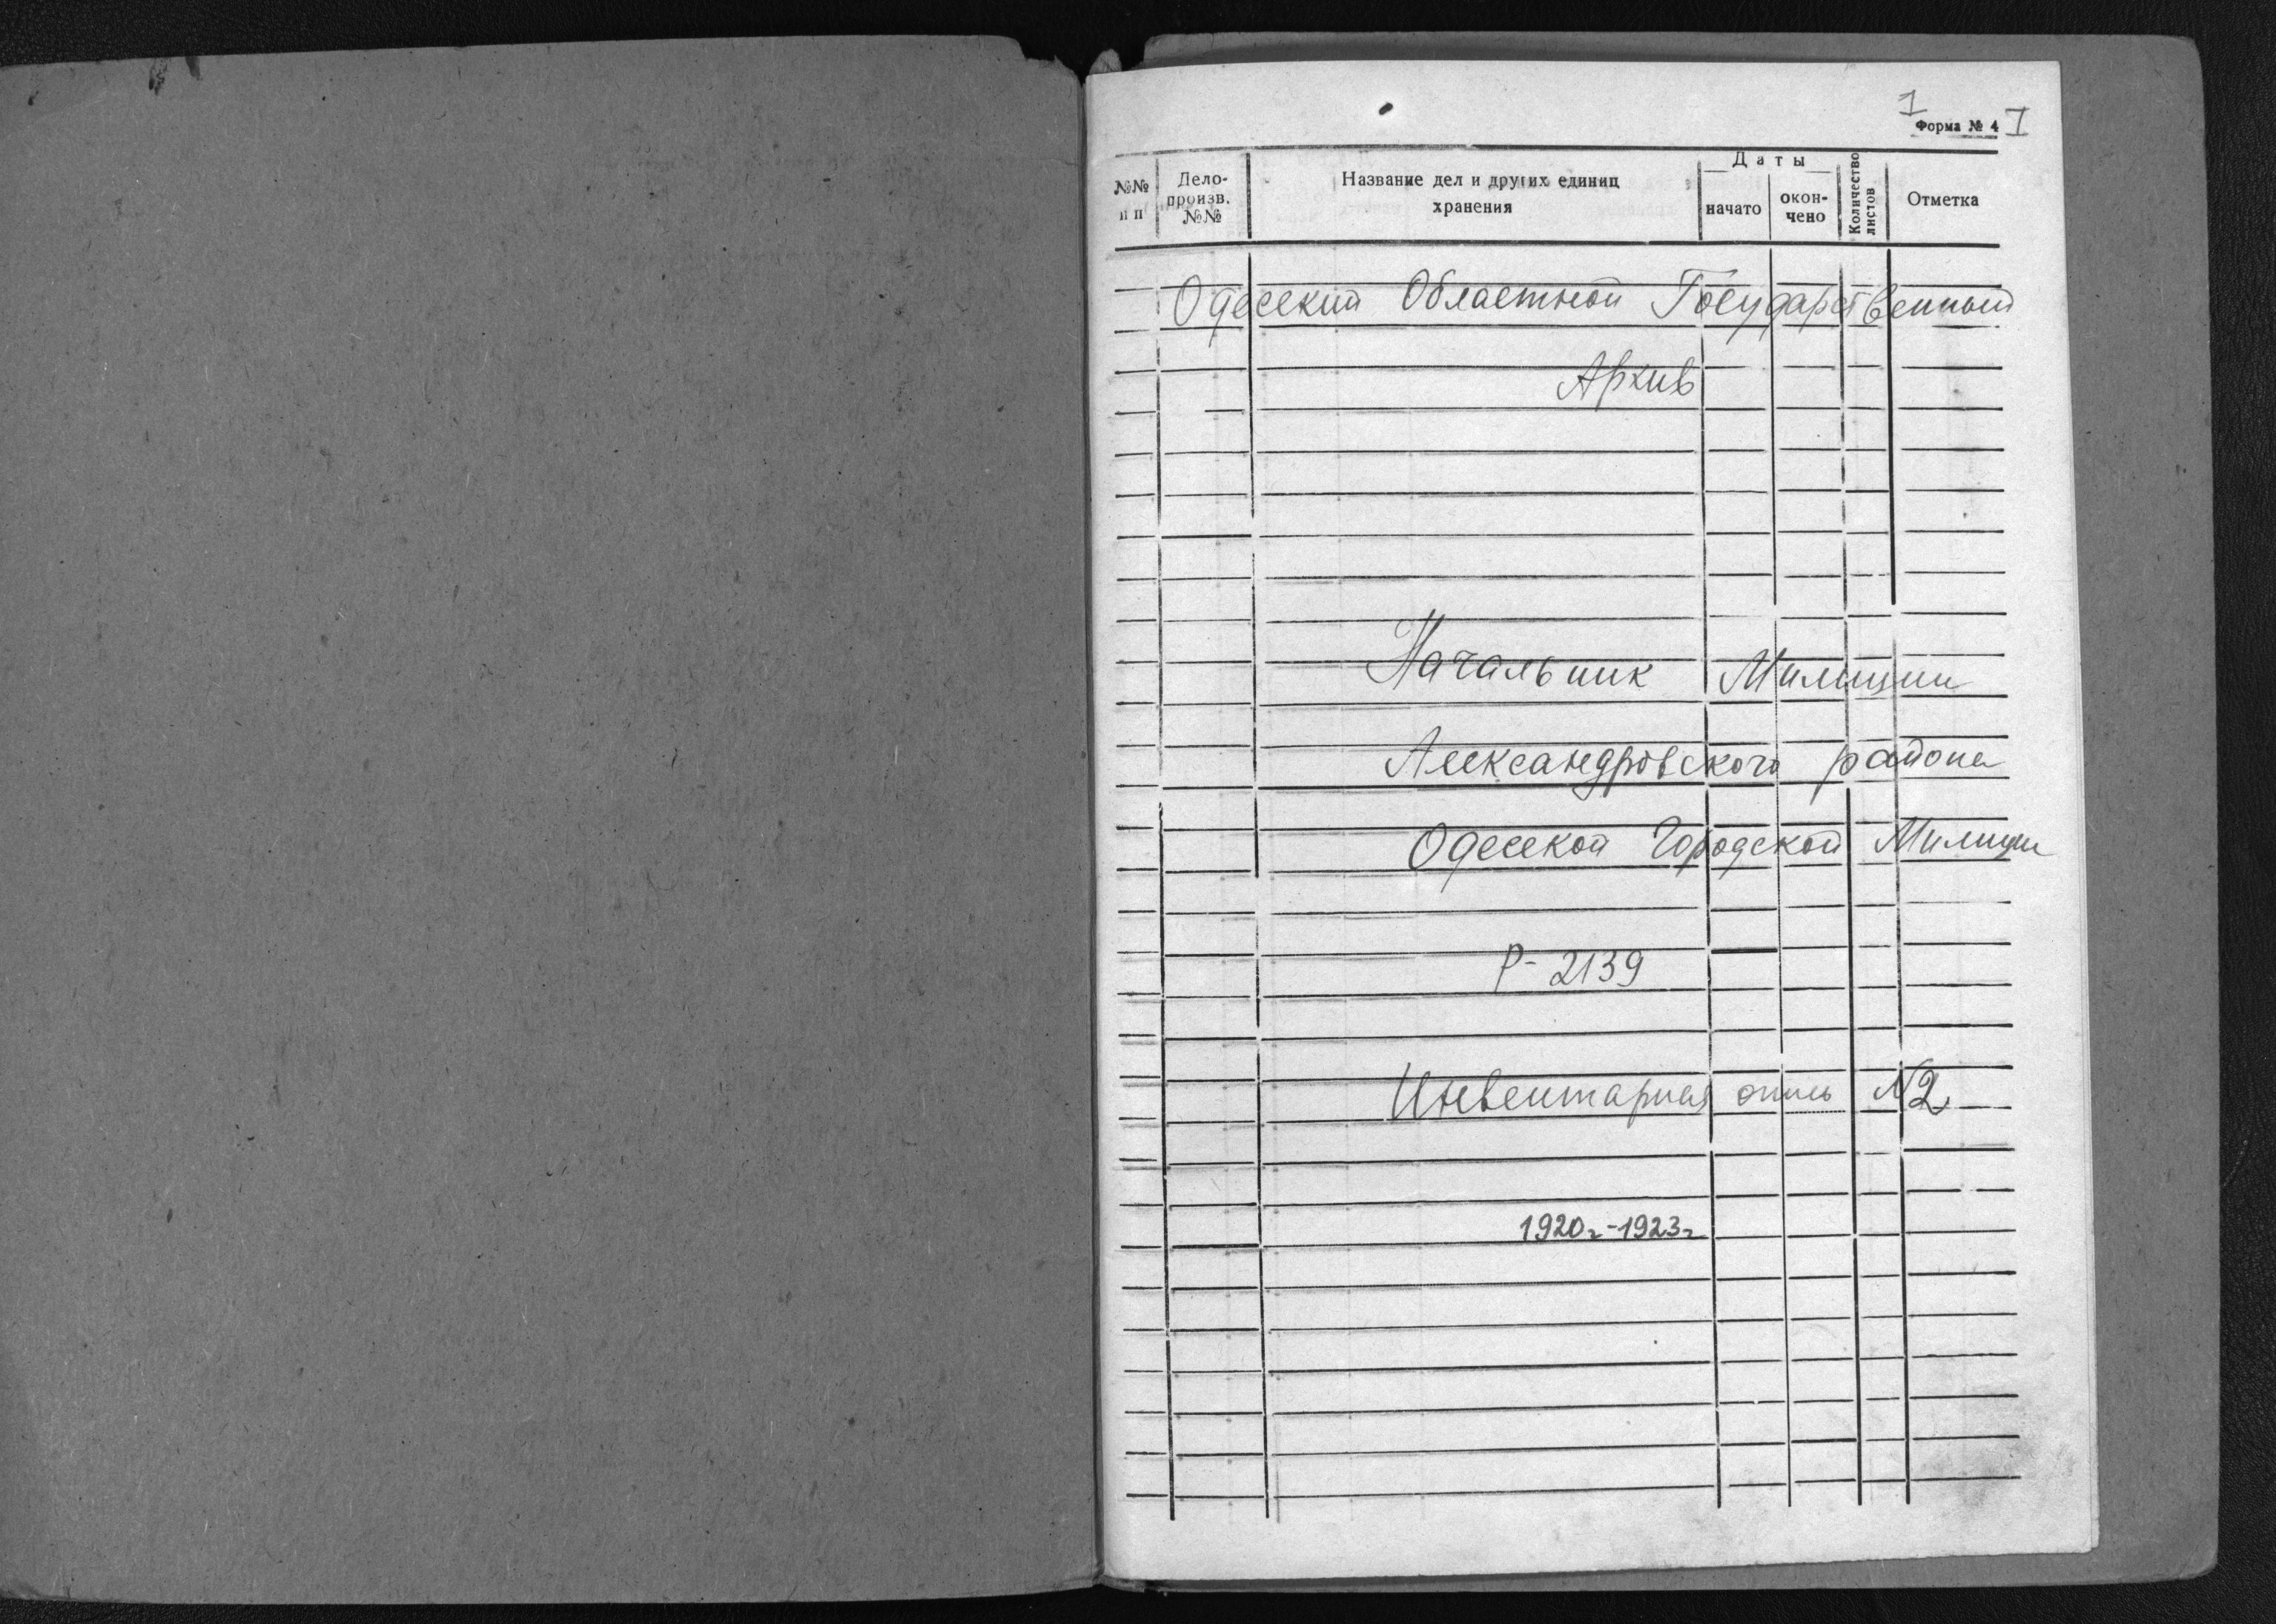 1
Форма № 4 I
№№ п п
Дело-
произв.
№№
Название дел и других единиц
хранения
Даты
начато
окон-
чено
Количество
листов
Отметка
Одесский Областной Государственный
Архив
Начальник Милиции
Александровского района
Одесской Городской Милиции
Р-2139
Инвентарная опись №2
1920г-1923г